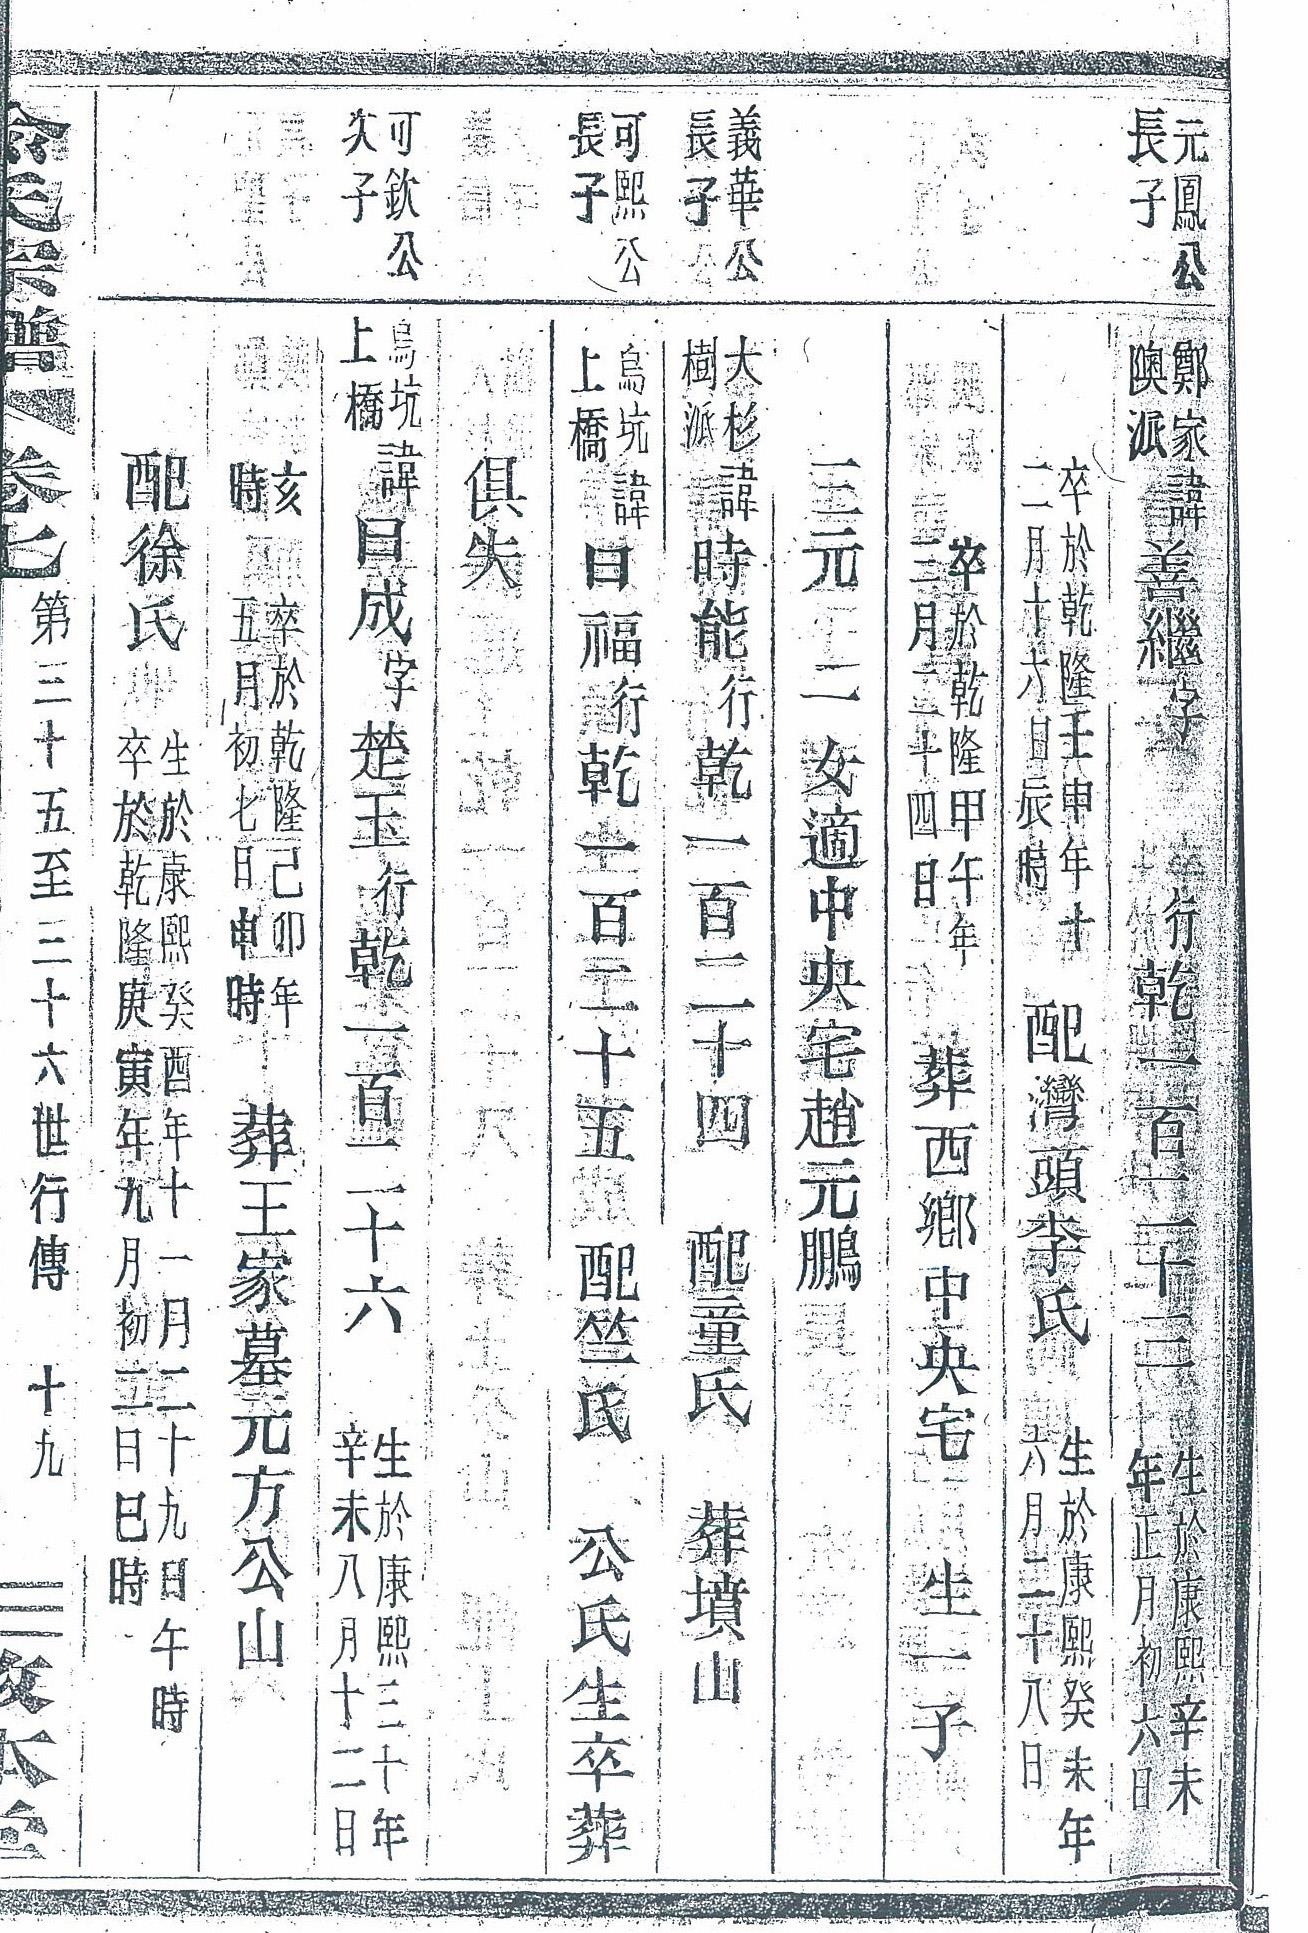 元鳳公
長子
鄭家
隩派
諱善繼字 行乾一百二十三
生於康熙辛未
年正月初六日
卒於乾隆壬申年十
二月十六日辰時
配灣頭李氏
生於康熙癸未年
六月二十八日
卒於乾隆甲午年
三月二十四日
葬西鄉中央宅 生一子
三元 二女適中央宅趙元鵬
義華公
長子
大杉
樹派
諱時能行乾一百二十四 配童氏 葬墳山
可熙公
長子
烏坑
上橋
諱曰福行乾一百二十五 配竺氏 公氏生卒葬
俱失
可欽公
次子
烏坑
上橋
諱曰成字楚玉行乾一百二十六
生於康熙三十年
辛未八月十二日
亥
時
卒於乾隆己卯年
五月初七日申時
葬王家墓元方公山
配徐氏
生於康熙癸酉年十一月二十九日午時
卒於乾隆庚寅年九月初二日巳時
氏宗譜 卷七 第三十五至三十六世行傳 十九 敦本堂